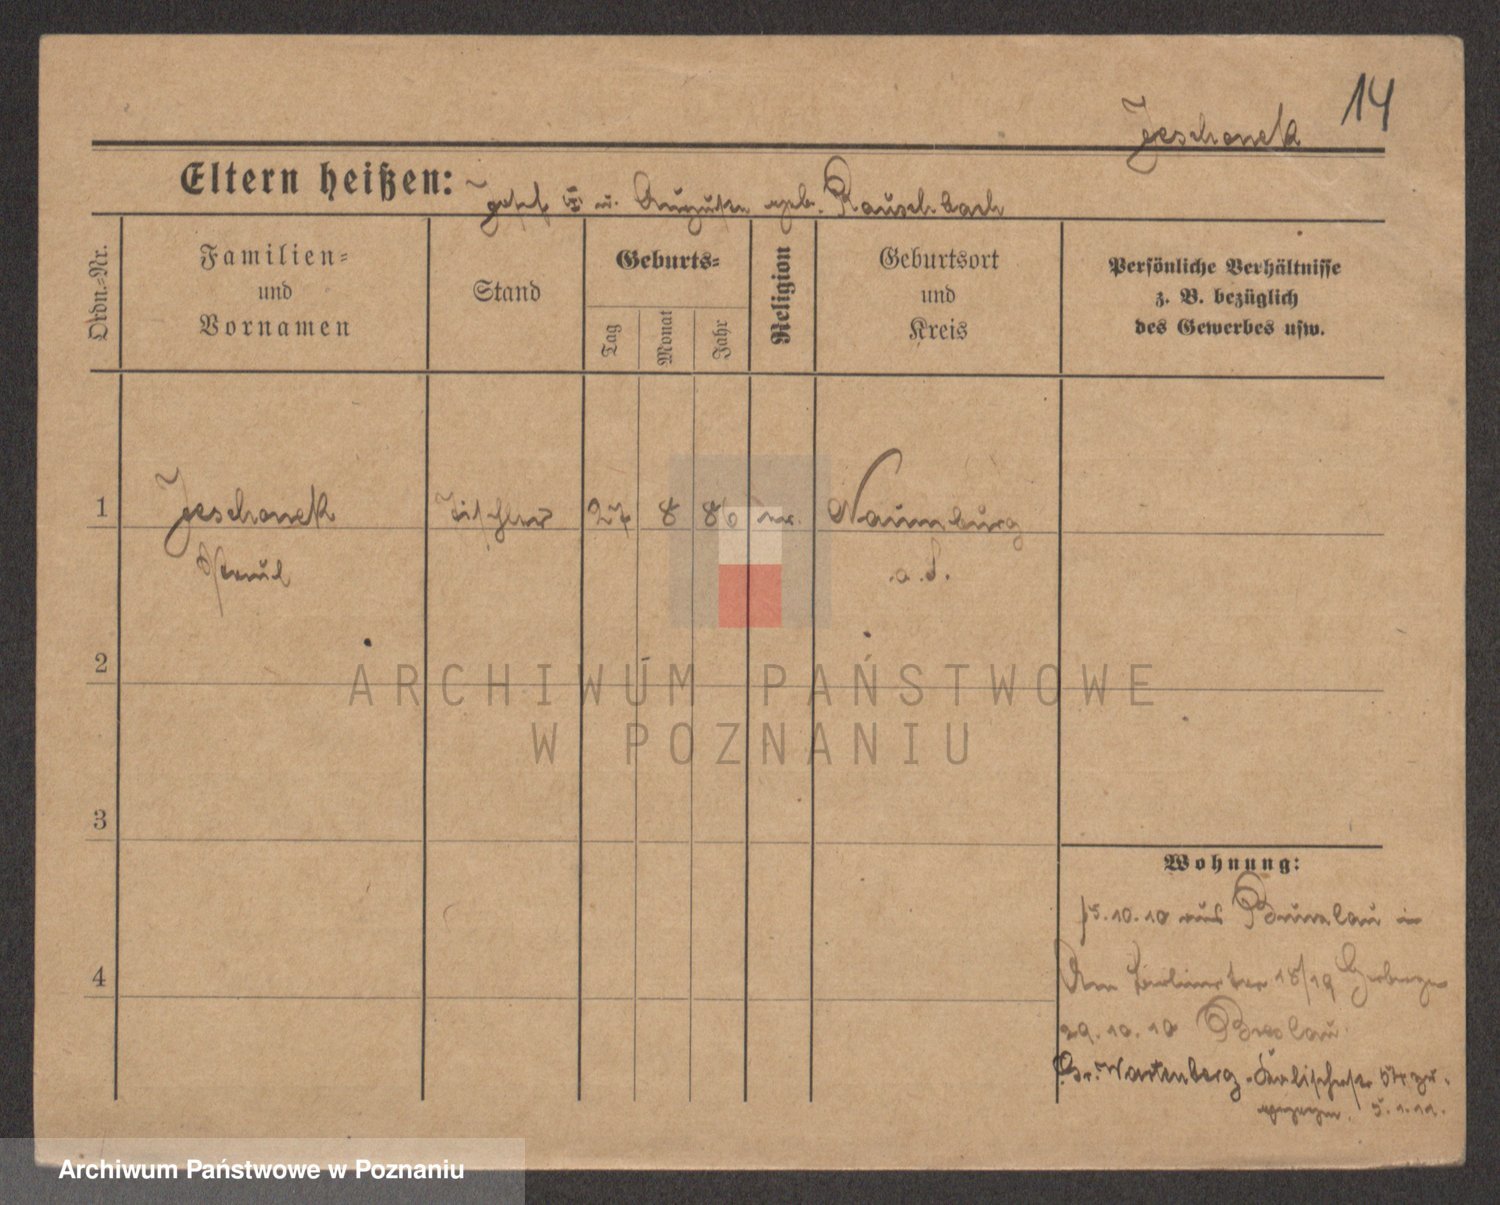 14
Jeschonek
Eltern heißen: Josef u. Auguste geb. Rauschbach
Ordn.-Nr.
Familien- und Vornamen
Stand
Geburts-
Tag
Monat
Jahr
Religion
Geburtsort und Kreis
Persönliche Verhältnisse z. B. bezüglich des Gewerbes usw.
1 Jeschonek Tischler 27 8 86 Naumburg
Paul a. S.
2
3
4
Wohnung:
15.10.10 aus Bunzlau in
18/19
29.10.10 Breslau
Gr. Wartenberg
gezogen. 5.1.11.
ARCHIWUM PAŃSTWOWE
W POZNANIU
Archiwum Państwowe w Poznaniu